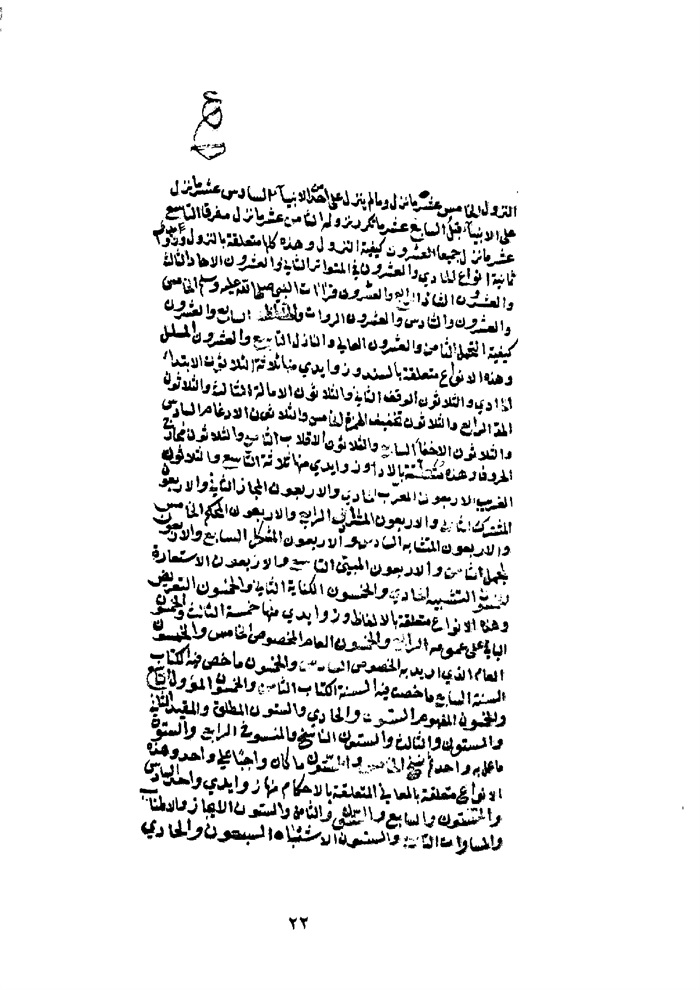 النزول الخامس عشر ما نزل وما لم ينزل على أحد من الانبياء السادس عشر ما نزل
على الانبياء قبل السابع عشر ما تكرر نزوله الثامن عشر ما نزل مفرقا التاسع
عشر ما نزل جميعا العشرون كيفية النزول وهذه كلها متعلقة بالنزول
ثمانية انواع الحادي والعشرون في المتواتر الثاني والعشرون الاحاد الثالث
والعشرون الشاذ الرابع والعشرون قراات النبي صلى الله عليه وسلم الخامس
والعشرون والسادس والعشرون الرواة والحفاظ السابع والعشرون
كيفية التحمل الثامن والعشرون العالي والنازل التاسع والعشرون المسلسل
وهذه الانواع متعلقة بالسند وزوايدي منها ثلاثة الثلاثون الابتداء
الحادي والثلاثون الوقف الثاني والثلاثون الامالة الثالث والثلاثون
المد الرابع والثلاثون تخفيف الهمزة الخامس والثلاثون الادغام السادس
والثلاثون الاخفا السابع والثلاثون الاقلاب الثامن والثلاثون مخارج
الحروف وهذه متعلقة بالادا وزوايدي منها ثلاثة التاسع والثلاثون
الغريب الاربعون المعرب الحادي والاربعون المجاز الثاني والاربعون
المشترك الثالث والاربعون المترادف الرابع والاربعون المحكم الخامس
والاربعون المتشابه السادس والاربعون المشكل السابع والاربعون
المجمل الثامن والاربعون المبين التاسع والاربعون الاستعارة
الخمسون التشبيه الحادي والخمسون الكناية الثاني والخمسون التعريض
وهذه الانواع متعلقة بالالفاظ وزوايدي منها خمسة الثالث والخمسون
الباقي على عمومه الرابع والخمسون العام المخصوص الخامس والخمسون
العام الذي اريد به الخصوص السادس والخمسون ما خص فيه الكتاب
السنة السابع ما خصت فيه السنة الكتاب الثامن والخمسون المؤول التاسع
والخمسون المفهوم الستون والحادي والستون المطلق والمقيد الثاني
والستون والثالث والستون الناسخ والمنسوخ الرابع والستون
ما عمل به واحد ثم نسخ الخامس والستون ما كان واجبا على واحد وهذه
الانواع متعلقة بالمعاني المتعلقة بالاحكام منها زوايدي واحد السادس
والستون والسابع والستون والثامن والستون الايجاز والاطناب
والمساوات التاسع والستون الاشباه السبعون والحادي
٢٢